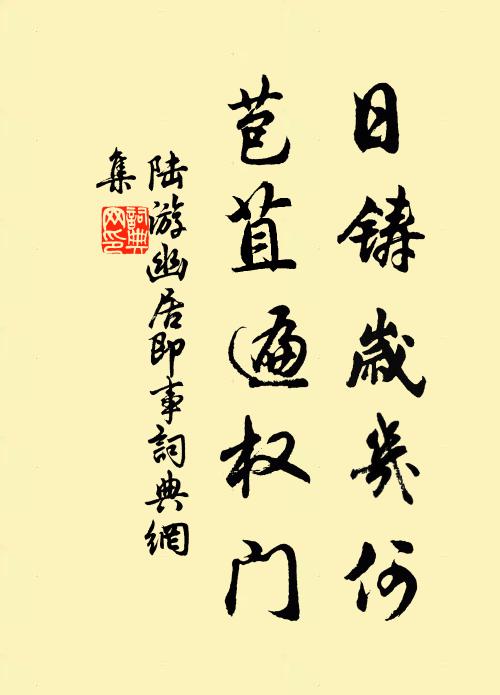 日铸岁几何
苞苴遍权门
陆游幽居即事詞典網
集
詞典
网印